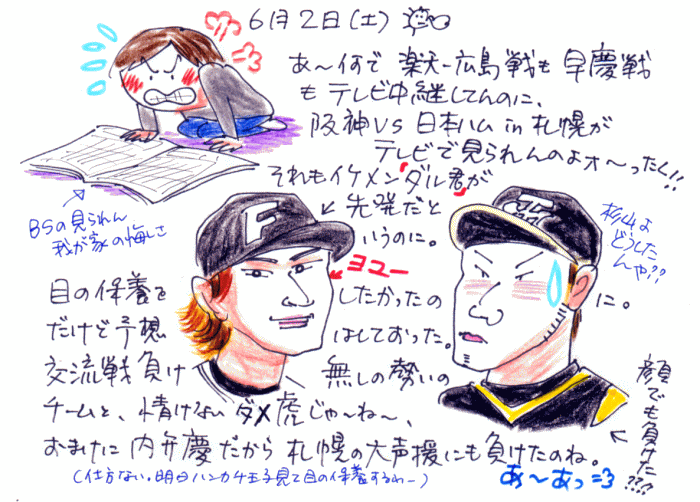 6月2日(土)
あ〜何で 楽天-広島戦も 早慶戦
も テレビ中継してんのに、
阪神VS日本ハム in 札幌が
テレビで見られんのよォ〜ったく!!
それもイケメン"ダル君"が
先発だと
いうのに。
BSの見られん
我が家の悔しさ
杉山よ
どうした
んや??
F
目の保養を
ヨユー
したかったの
に。
だけど予想
はしておった。
交流戦負け
無しの勢いの
チームと、情けない ダメ虎じゃ〜ね〜、
おまけに 内弁慶だから 札幌の大声援にも負けたのね。
顔でも負けた???
(仕方ない。明日ハンカチ王子見て目の保養するわー)
あ〜あっ=3